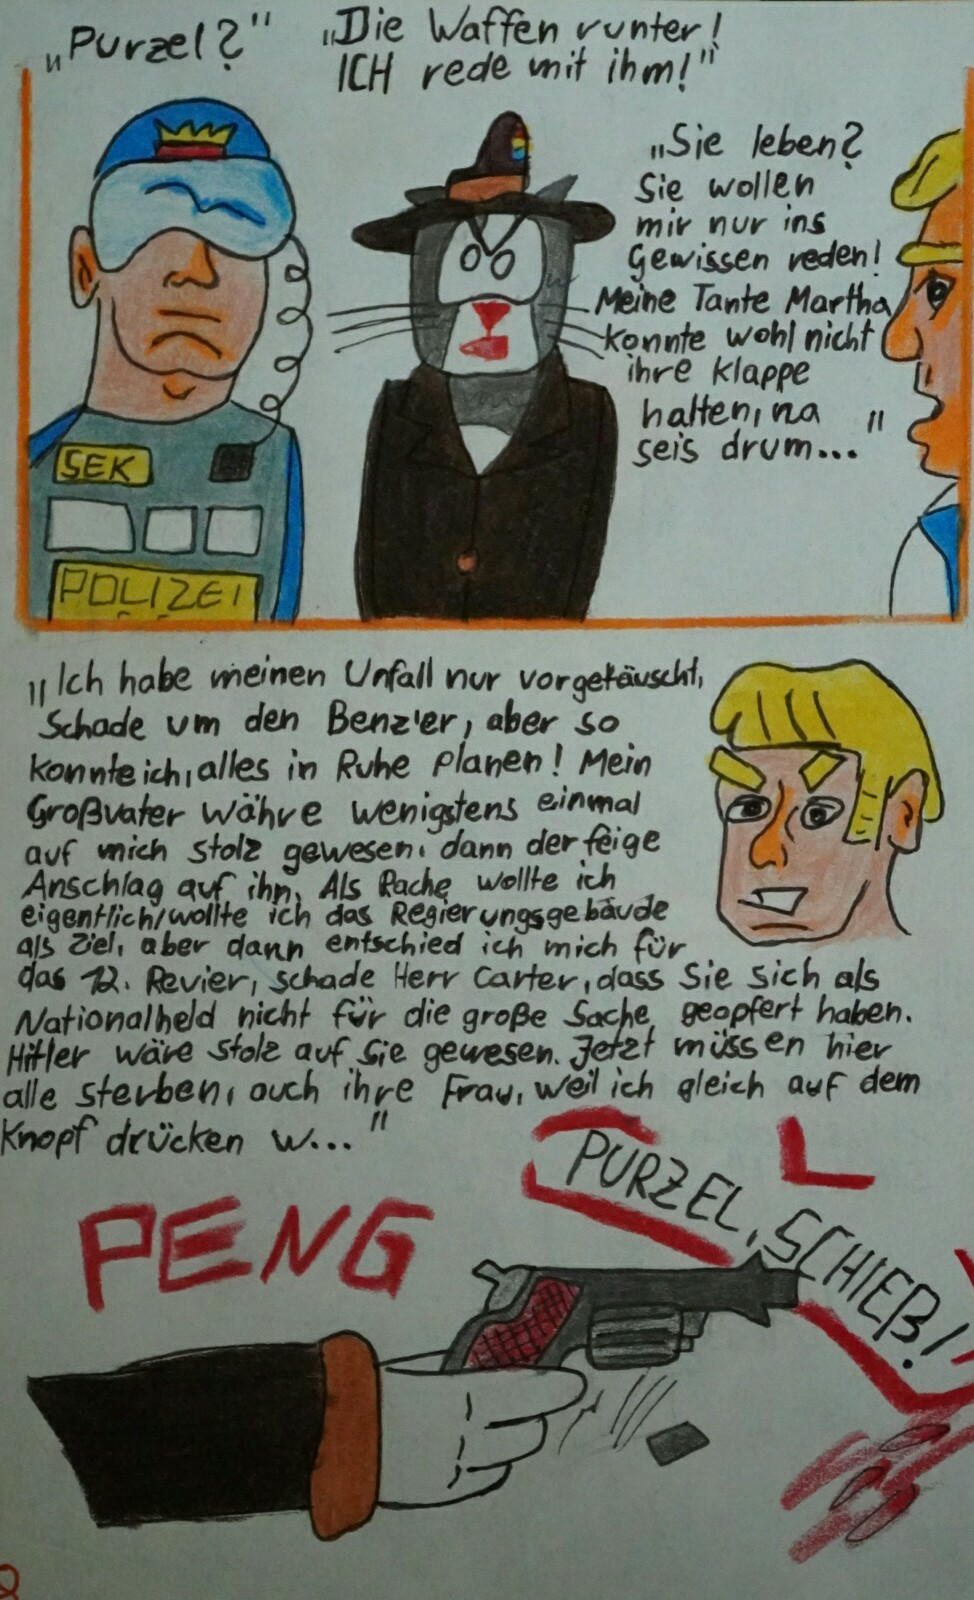 „Purzel?"
„Die Waffen runter!
ICH rede mit ihm!"
„Sie leben?
Sie wollen
mir nur ins
Gewissen reden!
Meine Tante Martha
konnte wohl nicht
ihre Klappe
halten, na
seis drum..."
SEK
POLIZEI
„Ich habe meinen Unfall nur vorgetäuscht,
Schade um den Benz'er, aber so
konnte ich, alles in Ruhe planen! Mein
Großvater währe wenigstens einmal
auf mich stolz gewesen, dann der feige
Anschlag auf ihn. Als Rache wollte ich
eigentlich/wollte ich das Regierungsgebäude
als Ziel, aber dann entschied ich mich für
das 12. Revier, schade Herr Carter, dass Sie sich als
Nationalheld nicht für die große Sache geopfert haben.
Hitler wäre stolz auf Sie gewesen. Jetzt müssen hier
alle sterben, auch ihre Frau, weil ich gleich auf dem
Knopf drücken w..."
PURZEL, SCHIEß!
PENG